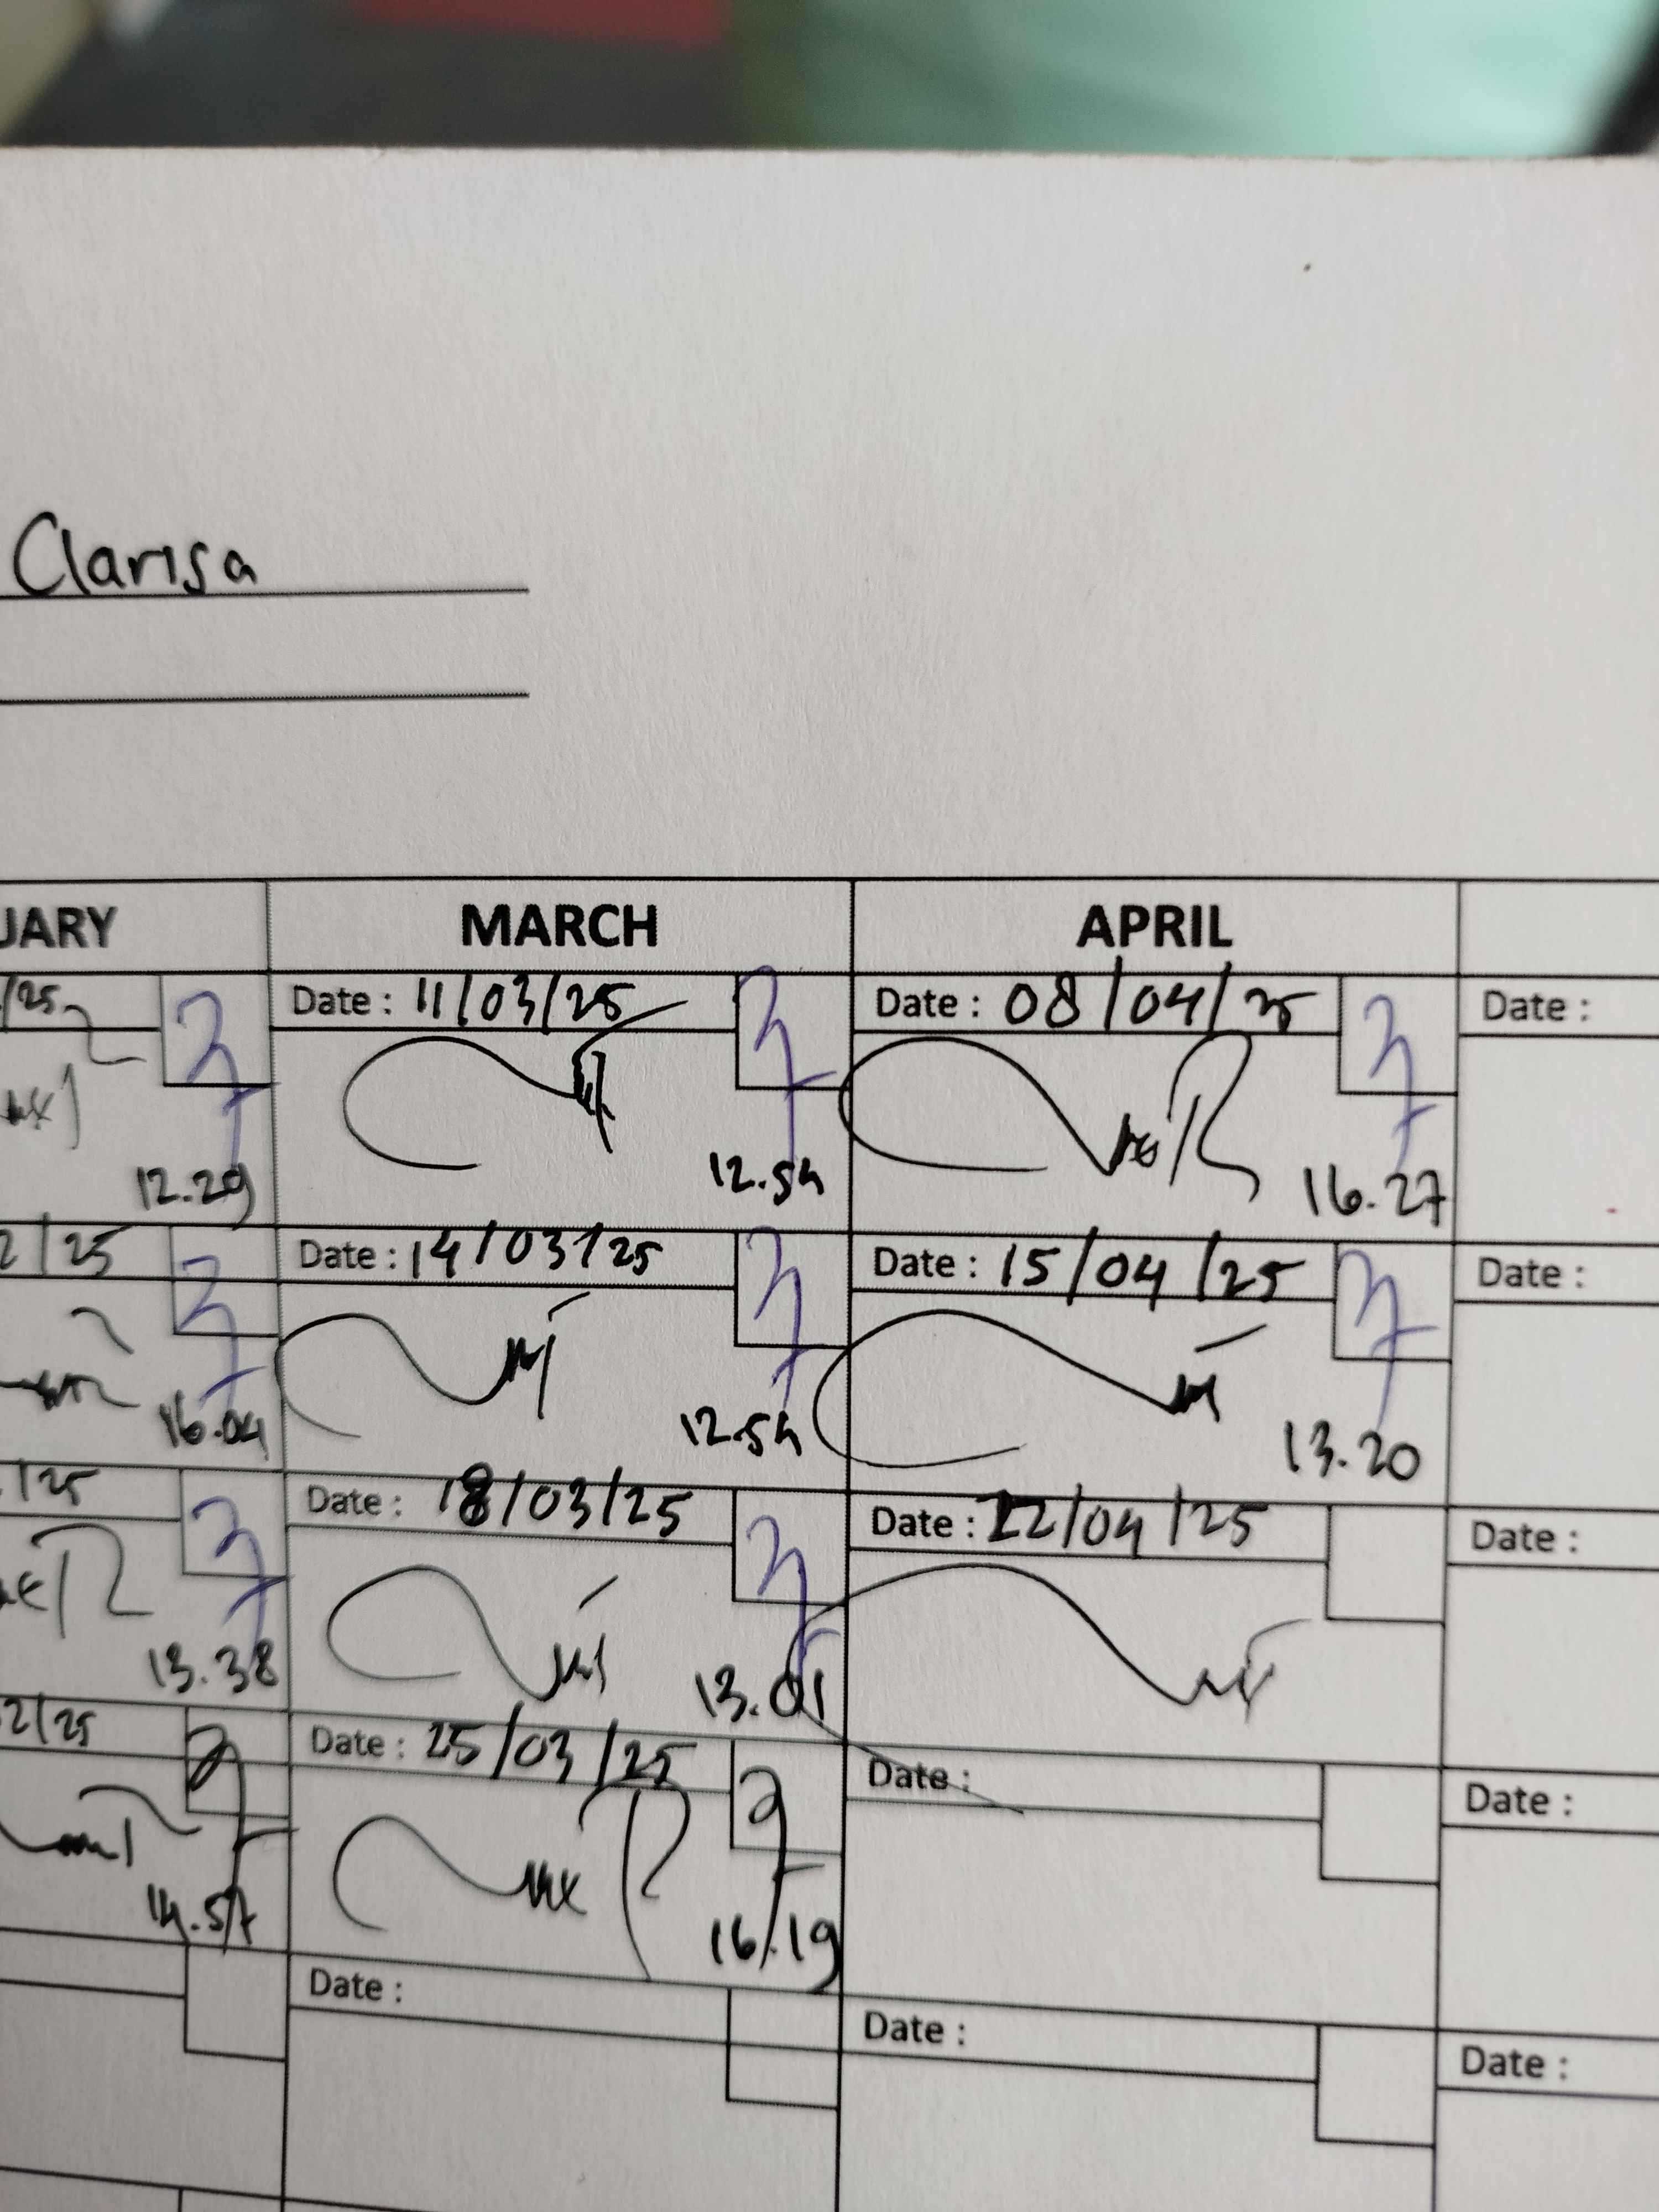 Clarisa
UARY MARCH APRIL
/25 Date : 11/03/25 Date : 08/04/25 Date :
12.29 12.54 16.27
2/25 Date : 14/03/25 Date : 15/04/25 Date :
16.04 12.54 13.20
/25 Date : 18/03/25 Date : 22/04/25 Date :
13.38 13.01
2/25 Date : 25/03/25 Date : Date :
14.57 16/19
Date : Date : Date :